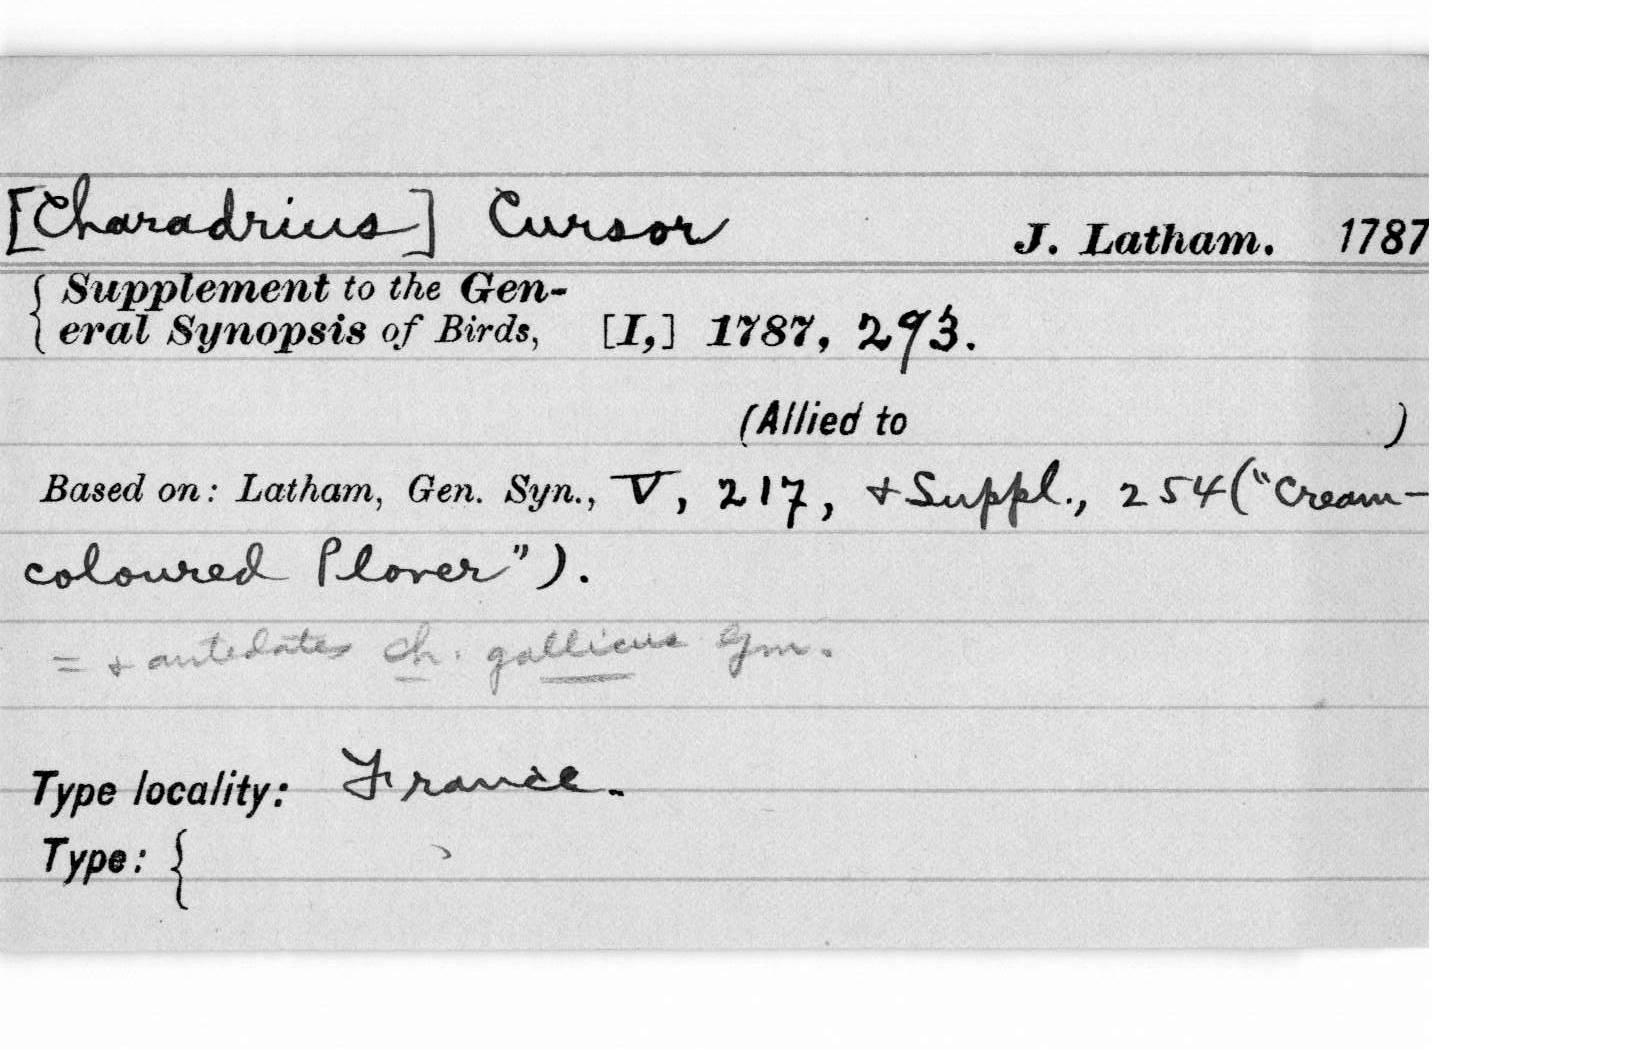 [Charadrius] Cursor J. Latham. 1787
{ Supplement to the Gen-
eral Synopsis of Birds, [I,] 1787, 293.
(Allied to )
Based on: Latham, Gen. Syn., V, 217, + Suppl., 254 ("Cream-
coloured Plover").
= + antedates Ch. gallicus Gm.
Type locality: France.
Type: {